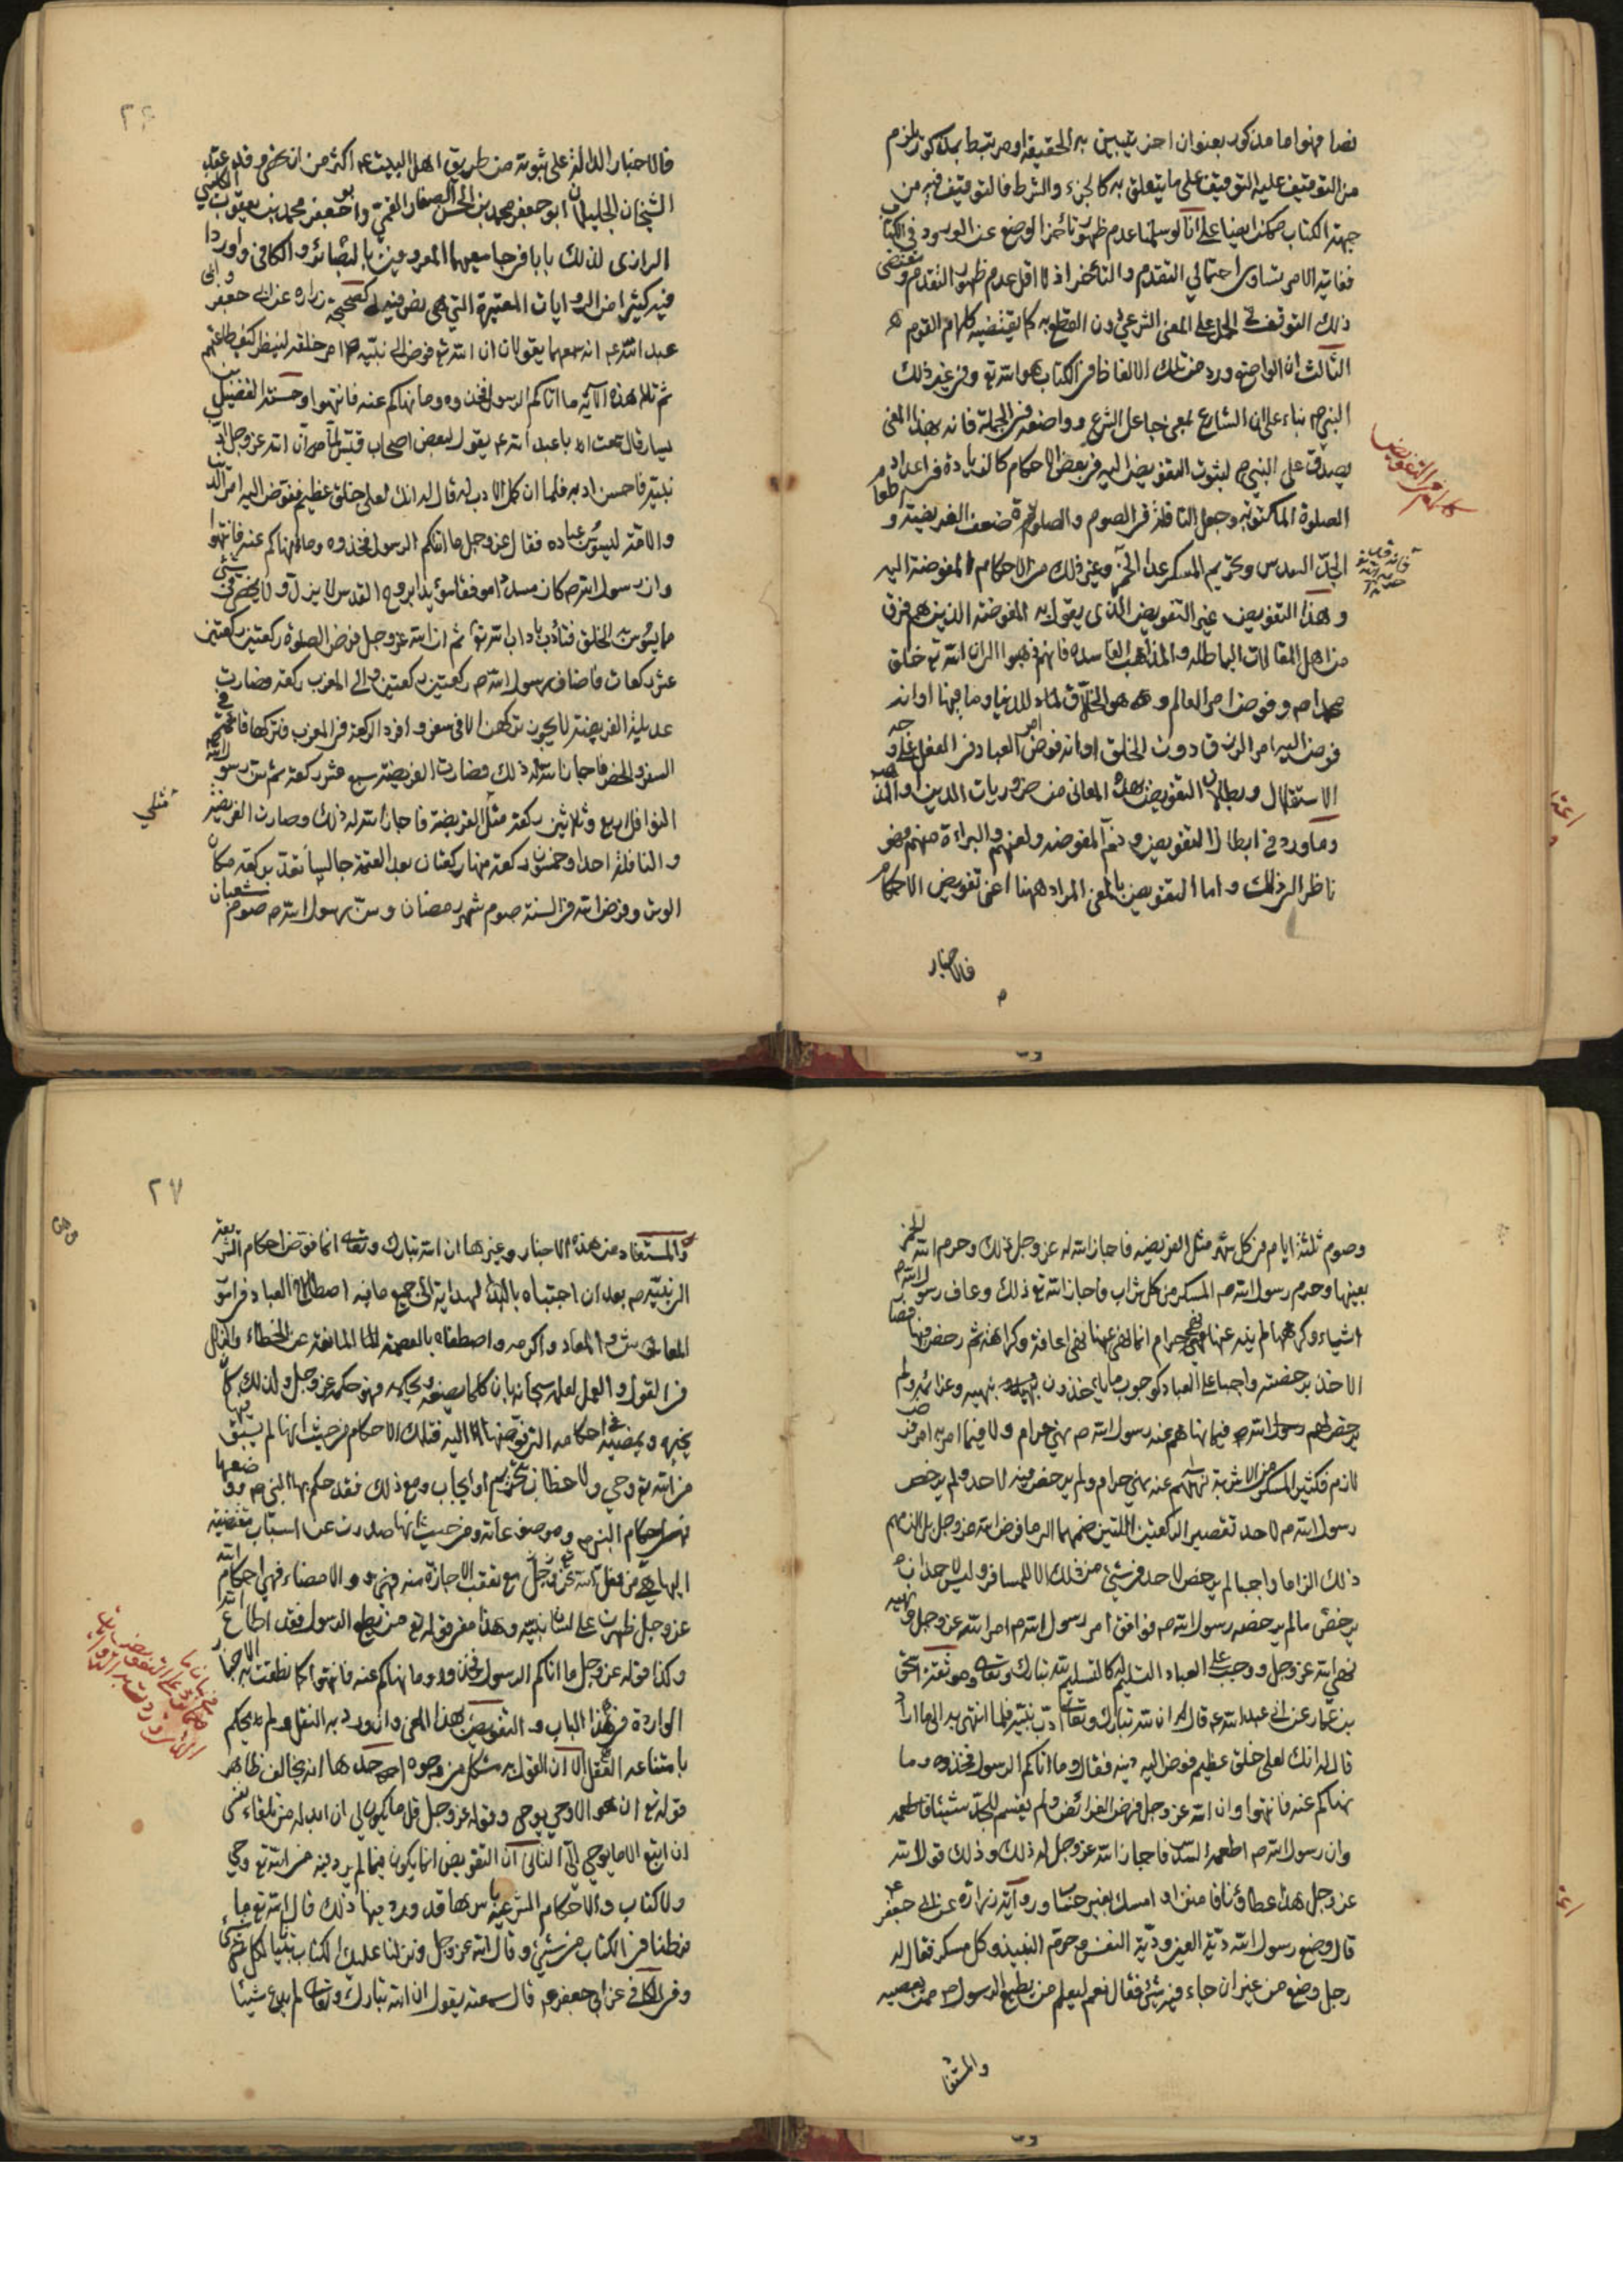 نصا فهو اما مذكور بعنوان اخر يتبين به الحقيقة او مرتبط بمذكور يلزم
من التوقيف عليه التوقيف على ما يتعلق به كالجزء والشرط فالتوقيف فيه من
جهة الكتاب ممكن ايضا على انا لو سلمنا عدم ظهور تأخر الوضع عن الورود في الكتاب
فغاية الامر تساوى احتمالي التقدم والتأخر اذ لا اقل عدم ظهور التقدم ومقتضى
ذلك التوقف في الحمل على المعنى الشرعي دون القطع به كما يقتضيه كلام القوم
الثالث ان الواضع وردت تلك الالفاظ في الكتاب هو الله تع وفي غير ذلك
النبي ص بناء على ان الشارع بمعنى جاعل الشرع وواضعه في الجملة فانه بهذا المعنى
يصدق على النبي ص لثبوت التفويض اليه في بعض الاحكام كالزيادة في اعداد
الصلوة المكتوبة وجعل النافلة في الصوم والصلوة ضعف الفريضة و
الجد السدس وتحريم المسكر عدا الخمر وغير ذلك من الاحكام المفوضة اليه
وهذا التفويض غير التفويض الذى يقول به المفوضة الذين هم فرق
من اهل المقالات الباطلة والمذاهب الفاسدة فانهم ذهبوا الى ان الله تع خلق
محمدا ص وفوض امر العالم وهو الخلاق للدنيا وما فيها او انه
فوض اليه امر الرزق دون الخلق او انه فوض امر العباد في الفعل على وجه
الاستقلال وبطلان التفويض بهذه المعانى من ضروريات الدين او المذهب
وما ورد في ابطال التفويض وذم المفوضة ولعنهم والبراءة منهم فهو
ناظر الى ذلك واما التفويض بالمعنى المراد ههنا اعنى تفويض الاحكام
فالاخبار
كلام في التفويض
فالاخبار الدالة على ثبوته من طريق اهل البيت ع اكثر من ان تحصى وقد عقد
الشيخان الجليلان ابو جعفر محمد بن الحسن الصفار القمي وابو جعفر محمد بن يعقوب الكليني
الرازى لذلك بابا في جامعيهما المعروفين بالبصائر والكافى واوردا
فيه كثيرا من الروايات المعتبرة التي هي نص فيه كصحيحة زرارة عن ابى جعفر وابى
عبد الله ع انه سمعهما يقولان ان الله تع فوض الى نبيه ص امر خلقه لينظر كيف طاعتهم
ثم تلا هذه الآية ما اتاكم الرسول فخذوه وما نهاكم عنه فانتهوا وحسنة الفضيل بن
يسار قال سمعت ابا عبد الله ع يقول لبعض اصحاب قيس الماصر ان الله عز وجل ادب
نبيه فاحسن ادبه فلما ان كمل الادب له قال له انك لعلى خلق عظيم ففوض اليه امر الدين
والامة ليسوس عباده فقال عز وجل ما اتاكم الرسول فخذوه وما نهاكم عنه فانتهوا
وان رسول الله ص كان مسددا موفقا مؤيدا بروح القدس لا يزل ولا يخطى في شئ
مما يسوس به الخلق فتأدب باداب الله تع ثم ان الله عز وجل فرض الصلوة ركعتين ركعتين
عشر ركعات فاضاف رسول الله ص ركعتين ركعتين والى المغرب ركعة فصارت
عديلة الفريضة لا يجوز تركهن الا في سفر وافرد الركعة في المغرب فتركها قائمة في
السفر والحضر فاجاز الله له ذلك فصارت الفريضة سبع عشر ركعة ثم سن رسول الله ص
النوافل اربع وثلاثين ركعة مثلى الفريضة فاجاز الله له ذلك وصارت الفريضة
والنافلة احدا وخمسون ركعة منها ركعتان بعد العتمة جالسا تعد بركعة مكان
الوتر وفرض الله في السنة صوم شهر رمضان وسن رسول الله ص صوم شعبان
مثلي
وصوم ثلثة ايام في كل شهر مثلى الفريضة فاجاز الله له عز وجل ذلك وحرم الله الخمر
بعينها وحرم رسول الله ص المسكر من كل شراب فاجاز الله تع ذلك وعاف رسول الله ص
اشياء وكرهها لم ينه عنها نهى حرام انما نهى عنها نهى اعافة وكراهة ثم رخص فيها فصار
الاخذ برخصته واجبا على العباد كوجوب ما ياخذون بنهيه وعزائمه ولم
يرخص لهم رسول الله ص فيما نهاهم عنه رسول الله ص نهى حرام ولا فيما امر به امر فرض
لازم فكثير المسكر من الاشربة نهاهم عنه نهى حرام ولم يرخص فيه لاحد ولم يرخص
رسول الله ص لاحد تقصير الركعتين اللتين ضمهما الى ما فرض الله عز وجل بل الزمهم
ذلك الزاما واجبا لم يرخص لاحد في شئ من ذلك الا للمسافر وليس لاحد ان
يرخص ما لم يرخصه رسول الله ص فوافق امر رسول الله ص امر الله عز وجل ونهيه
نهى الله عز وجل ووجب على العباد التسليم له كالتسليم لله تبارك وتعالى وموثقة اسحق
بن عمار عن ابى عبد الله ع قال ان الله تبارك وتعالى ادب نبيه فلما انتهى به الى ما اراد
قال له انك لعلى خلق عظيم ففوض اليه دينه فقال وما اتاكم الرسول فخذوه وما
نهاكم عنه فانتهوا وان الله عز وجل فرض الفرائض ولم يقسم للجد شيئا فاطعمه
وان رسول الله ص اطعمه السدس فاجاز الله عز وجل له ذلك وذلك قول الله
عز وجل هذا عطاؤنا فامنن او امسك بغير حساب ورواية زرارة عن ابى جعفر ع
قال وضع رسول الله دية العين ودية النفس وحرم النبيذ وكل مسكر فقال له
رجل وضع من غير ان جاء فيه شئ فقال نعم ليعلم من يطيع الرسول ص ممن يعصيه
والمستفا
٢٧
والمستفاد من هذه الاخبار وغيرها ان الله تبارك وتعالى انما فوض احكام الشريعة
الى نبيه ص بعد ان اجتباه بالهداية الى جميع ما فيه اصطلاح العباد في امور
المعاش والمعاد واكرمه واصطفاه بالعصمة المانعة عن الخطاء والخلل
في القول والعمل لعلمه سبحانه بان كلما يصنعه ويحكم به فهو حكمه عز وجل ولذلك كان
يجيزه ويمضيه في احكامه التي فوضها اليه فتلك الاحكام من حيث انها لم يسبق فيها
من الله تع وحي ولا خطاب بتحريم او ايجاب ومع ذلك فقد حكم بها النبي ص ووضعها
فهى احكام النبي ص وموضوعاته ومن حيث انها صدرت عن اسباب مفضية
اليها هي من فعل الله عز وجل مع تعقب الاجازة منه فهى والامضاء فهى احكام الله
عز وجل ظهرت على لسان نبيه وهذا معنى قوله تع من يطع الرسول فقد اطاع الله
وكذا قوله عز وجل ما اتاكم الرسول فخذوه وما نهاكم عنه فانتهوا كما نطقت به الاخبار
الواردة في هذا الباب والتفويض بهذا المعنى وان ورد به النقل ولم يحكم
بامتناعه العقل الا ان القول به مشكل من وجوه احدها انه يخالف ظاهر
قوله تع ان هو الا وحي يوحى وقوله عز وجل قل ما يكون لي ان ابدله من تلقاء نفسى
ان اتبع الا ما يوحى الي الثانى ان التفويض انما يكون فيما لم يرد فيه من الله تع وحي
ولا كتاب والاحكام الشرعية باسرها قد ورد فيها ذلك قال الله تع ما
فرطنا في الكتاب من شئ وقال الله عز وجل ونزلنا عليك الكتاب تبيانا لكل شئ
وفي الكافى عن ابى جعفر ع قال سمعته يقول ان الله تبارك وتعالى لم يدع شيئا